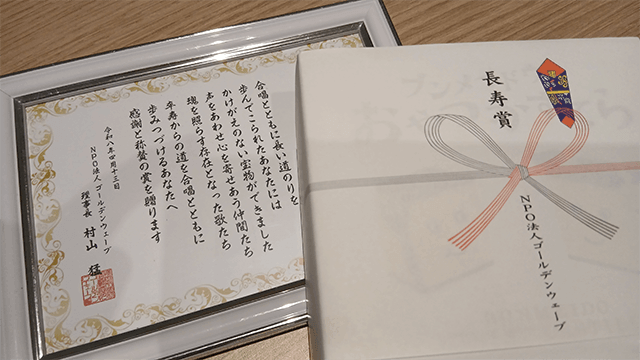 合唱とともに長い道のりを
歩んでこられたあなたには
かけがえのない宝物ができました
声をあわせ心を寄せあう仲間たち
魂を照らす存在となった歌たち
卒寿からの道を合唱とともに
歩みつづけるあなたへ
感謝と称賛の賞を贈ります
令和八年四月十三日
NPO法人ゴールデンウェーブ
理事長 村山 猛
長寿賞
NPO法人ゴールデンウェーブ